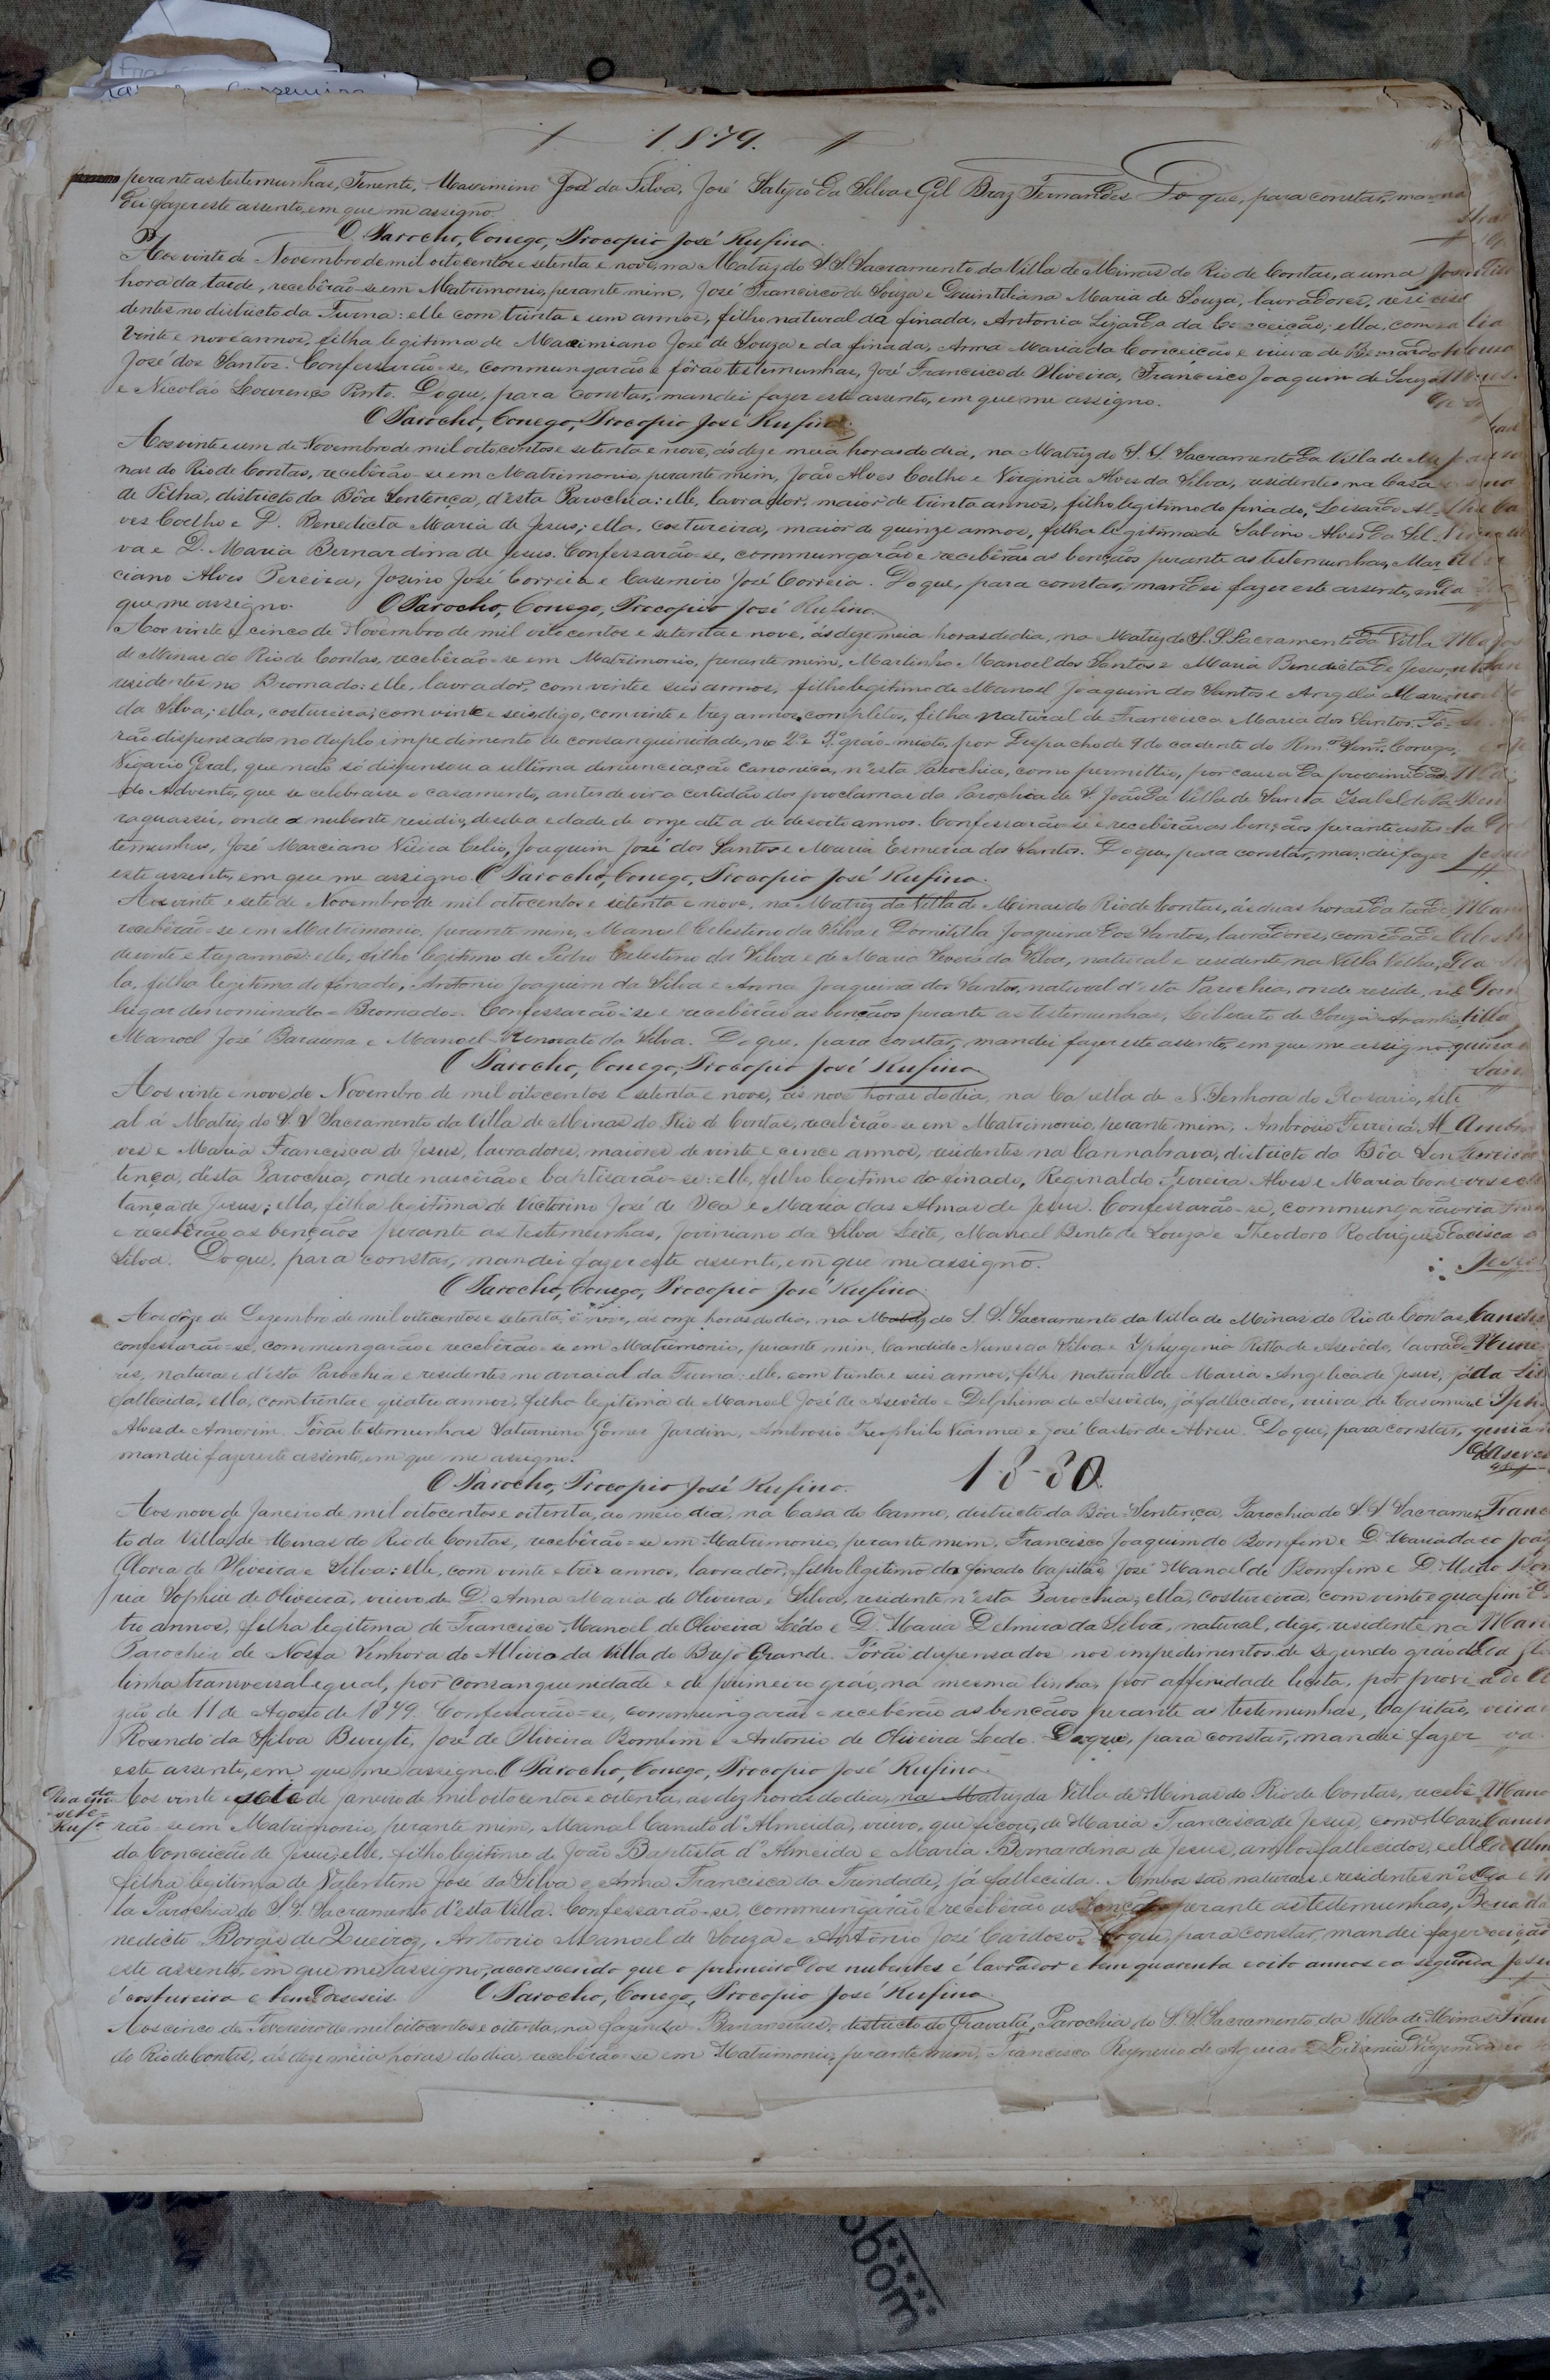 1879.
perante as testemunhas, Tenente, Maximino José da Silva, José Satyro da Silva e Gil Braz Fernandes. Do que, para constar, man
dei fazer este assento, em que me assigno.
O Parocho, Conego, Procopio José Rufino.
Aos vinte de Novembro de mil oitocentos e setenta e nove, na Matriz do S. S. Sacramento da Villa de Minas do Rio de Contas, a uma
hora da tarde, recebêrão-se em Matrimonio, perante mim, José Francisco de Souza e Quintiliana Maria de Souza, lavradores, resi
dentes no districto da Furna: elle com trinta e um annos, filho natural da finada, Antonia Lizarda da Conceição; ella, com
vinte e nove annos, filha legitima de Maximiano José de Souza e da finada, Anna Maria da Conceição e viuva de Bernardo
José dos Santos. Confessarão-se, commungarão e fôrão testemunhas, José Francisco de Oliveira, Francisco Joaquim de Souza
e Nicoláo Lourenço Pinto. Do que, para constar, mandei fazer este assento, em que me assigno.
O Parocho, Conego, Procopio José Rufino.
Aos vinte e um de Novembro de mil oitocentos e setenta e nove, ás dez e meia horas do dia, na Matriz do S. S. Sacramento da Villa de Mi
nas do Rio de Contas, recebêrão-se em Matrimonio, perante mim, João Alves Coelho e Virginia Alves da Silva, residentes na Casa
de Telha, districto da Bôa Sentença, d'esta Parochia: elle, lavrador, maior de trinta annos, filho legitimo do finado, Lisardo Al
ves Coelho e D. Benedicta Maria de Jesus; ella, costureira, maior de quinze annos, filha legitima de Sabino Alves da Sil
va e D. Maria Bernardina de Jesus. Confessarão-se, commungarão e recebêrão as bençãos perante as testemunhas, Mar
ciano Alves Pereira, Josino José Correia e Casemiro José Correia. Do que, para constar, mandei fazer este assento, em
que me assigno. O Parocho, Conego, Procopio José Rufino.
Aos vinte e cinco de Novembro de mil oito centos e setenta e nove, ás dez e meia horas do dia, na Matriz do S. S. Sacramento da Villa
de Minas do Rio de Contas, recebêrão-se em Matrimonio, perante mim, Martinho Manoel dos Santos e Maria Benedicta de Jesus,
residentes no Bromado: elle, lavrador, com vinte e seis annos, filho legitimo de Manoel Joaquim dos Santos e Angela Maria
da Silva; ella, costureira, com vinte e seis, digo, com vinte e trez annos completos, filha natural de Francisca Maria dos Santos. Fô-
rão dispensados no duplo impedimento de consanguinidade, no 2.º e 3.º gráo mixto, por Despacho de 9 do cadente do Rm.º Senr. Conego,
Vigario Geral, que não só dispensou a ultima denunciação canonica, n'esta Parochia, como permittio, por causa da proximidade
do Advento, que se celebrasse o casamento, antes de vir a certidão dos proclamas da Parochia de S. João da Villa de Santa Isabel do Pa
raguassú, onde a nubente residio, desde a edade de onze até a de desoito annos. Confessarão-se e recebêrão as bençãos perante as tes
temunhas, José Marciano Vieira Celio, Joaquim José dos Santos e Maria Esmeria dos Santos. Do que, para constar, mandei fazer
este assento, em que me assigno. O Parocho, Conego, Procopio José Rufino.
Aos vinte e sete de Novembro de mil oitocentos e setenta e nove, na Matriz da Villa de Minas do Rio de Contas, ás duas horas da tarde,
recebêrão-se em Matrimonio, perante mim, Manoel Celestino da Silva e Domitilla Joaquina dos Santos, lavradores, com edade
de vinte e trez annos: elle, filho legitimo de Pedro Celestino da Silva e de Maria da Silva, natural e residente na Villa Velha, el
la, filha legitima do finado, Antonio Joaquim da Silva e Anna Joaquina dos Santos, natural d'esta Parochia, onde reside, no
lugar denominado = Bromado =. Confessarão-se e recebêrão as bençãos perante as testemunhas, Liberato de Souza Aranha,
Manoel José Barauna e Manoel Honorato da Silva. Do que, para constar, mandei fazer este assento, em que me assigno.
O Parocho, Conego, Procopio José Rufino.
Aos vinte e nove de Novembro de mil oitocentos e setenta e nove, ás nove horas do dia, na Capella de N. Senhora do Rosario, fili
al á Matriz do S. S. Sacramento da Villa de Minas do Rio de Contas, recebêrão-se em Matrimonio, perante mim, Ambrosio Ferreira Al
ves e Maria Francisca de Jesus, lavradores, maiores de vinte e cinco annos, residentes na Cannabrava, districto da Bôa Sen
tença, desta Parochia, onde nascêrão e baptisarão-se: elle, filho legitimo do finado, Reginaldo Ferreira Alves e Maria Cons
tança de Jesus; ella, filha legitima de Victorino José de e Maria das Almas de Jesus. Confessarão-se, commungarão
e recebêrão as bençãos perante as testemunhas, Joviniano da Silva Leite, Manoel Bento de Souza e Theodoro Rodrigues da
Silva. Do que, para constar, mandei fazer este assento, em que me assigno.
O Parocho, Conego, Procopio José Rufino.
Aos doze de Dezembro de mil oitocentos e setenta e nove, ás onze horas do dia, na Matriz do S. S. Sacramento da Villa de Minas do Rio de Contas,
confessarão-se, commungarão e recebêrão-se em Matrimonio, perante mim, Candido Nunes da Silva e Iphygenia Ritta de Asevêdo, lavrado
res, naturaes d'esta Parochia e residentes no arraial da Furna: elle, com trinta e seis annos, filho natural de Maria Angelica de Jesus, já
fallecida, ella, com trinta e quatro annos, filha legitima de Manoel José de Asevêdo e Delphina de Asevêdo, já fallecidos, viuva de Casemiro
Alves de Amorim. Fôrão testemunhas Saturnino Gomes Jardim, Ambrosio Theophilo Vianna e José Castor de Abreu. Do que, para constar,
mandei fazer este assento, em que me assigno.
O Parocho, Procopio José Rufino.
1880.
Aos nove de Janeiro de mil oitocentos e oitenta, ao meio dia, na Casa do Carmo, districto da Bôa Sentença, Parochia do S. S. Sacramen
to da Villa de Minas do Rio de Contas, recebêrão-se em Matrimonio, perante mim, Francisco Joaquim do Bomfim e D. Maria da
Gloria de Oliveira e Silva: elle, com vinte e trez annos, lavrador, filho legitimo do finado Capitão, José Manoel do Bomfim e D. Ma
ria Sophia de Oliveira, viuvo de D. Anna Maria de Oliveira e Silva, residente n'esta Parochia; ella, costureira, com vinte e qua
tro annos, filha legitima de Francisco Manoel de Oliveira Lêdo e D. Maria Delmira da Silva, natural, digo, residente na
Parochia de Nossa Senhora do Allivio da Villa do Brejo Grande. Fôrão dispensados nos impedimentos de segundo gráo da
linha transversal equal, por consanguinidade e de primeiro gráo, na mesma linha, por affinidade licita, por provi
são de 11 de Agosto de 1879. Confessarão-se, commungarão e recebêrão as bençãos perante as testemunhas, Capitão,
Rosendo da Silva, José de Oliveira Bomfim e Antonio de Oliveira Ledo. Do que, para constar, mandei fazer
este assento, em que me assigno. O Parocho, Conego, Procopio José Rufino.
Aos vinte e sete de Janeiro de mil oitocentos e oitenta, as dez horas do dia, na Matriz da Villa de Minas do Rio de Contas, recebê
rão-se em Matrimonio, perante mim, Manoel Canuto d'Almeida, viuvo, que ficou, de Maria Francisca de Jesus, com Maria
da Conceição de Jesus; elle, filho legitimo de João Baptista d'Almeida e Maria Bernardina de Jesus, ambos fallecidos, e ella
filha legitima de Valentim José da Silva e Anna Francisca da Trindade, já fallecida. Ambos são naturaes e residentes n'es
ta Parochia do S. S. Sacramento d'esta Villa. Confessarão-se, commungarão e recebêrão as bençãos perante as testemunhas, Be
nedicto Borges de Queiroz, Antonio Manoel de Souza e Antonio José Cardoso. Do que, para constar, mandei fazer
este assento, em que me assigno, accrescendo que o primeiro dos nubentes é lavrador e tem quarenta e oito annos e a segunda
é costureira e tem deseseis. O Parocho, Conego, Procopio José Rufino.
Aos cinco de Fevereiro de mil oitocentos e oitenta, na fazenda Bananeiras, districto do Gravatá, Parochia do S. S. Sacramento da Villa de Minas
do Rio de Contas, ás dez e meia horas do dia, recebêrão-se em Matrimonio, perante mim, Francisco de Aguiar e